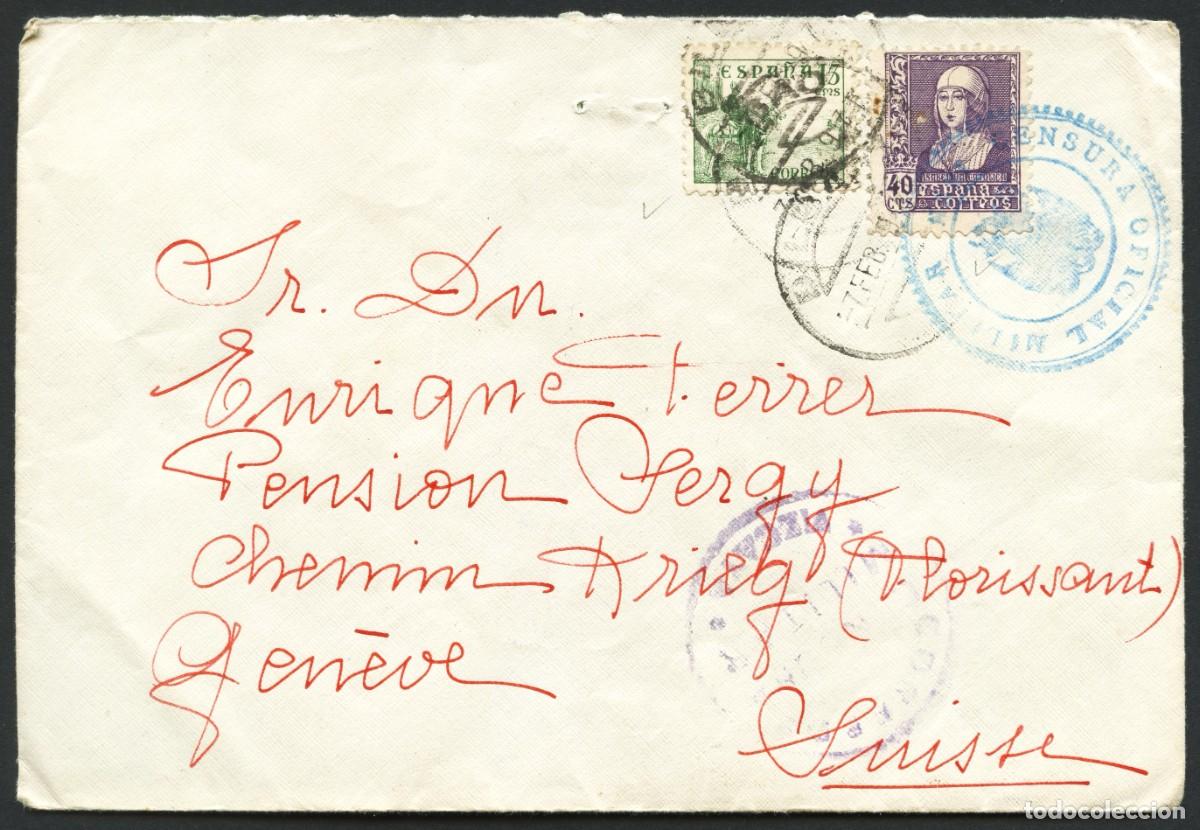 ESPAÑA 15
CTMS
CORREOS
ISABEL LA CATOLICA
40 ESPAÑA
CTS CORREOS
CENSURA OFICIAL MILITAR
7 FEB
Sr. Dn.
Enrique Ferrer
Pension Sergy
Chemin Krieg (Florissant)
Genève
Suisse
todocoleccion